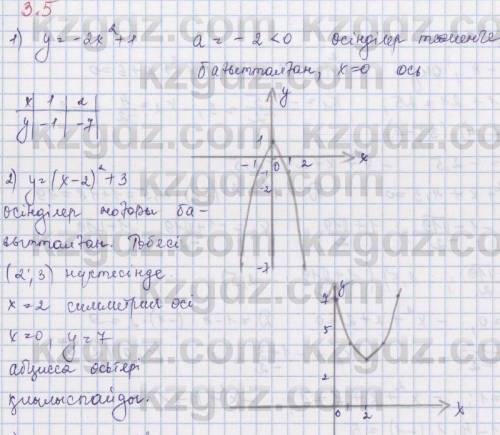 3.5
1) y = -2x² + 1 a = -2 < 0 осінділер төменге
бағытталған, x=0 ось
x | 1 | 2
y | -1 | -7
y
1
-1 0 1 2 x
-1
-2
-7
2) y = (x-2)² + 3
осінділер жоғары ба-
ғытталған. Төбесі
(2; 3) нүктесінде.
x = 2 симметрия осі
x=0, y = 7
абцисса осьтері
қиылыспайды.
y
7
5
2
0 2 x
kzgdz.com kzgdz.com kzgdz.com